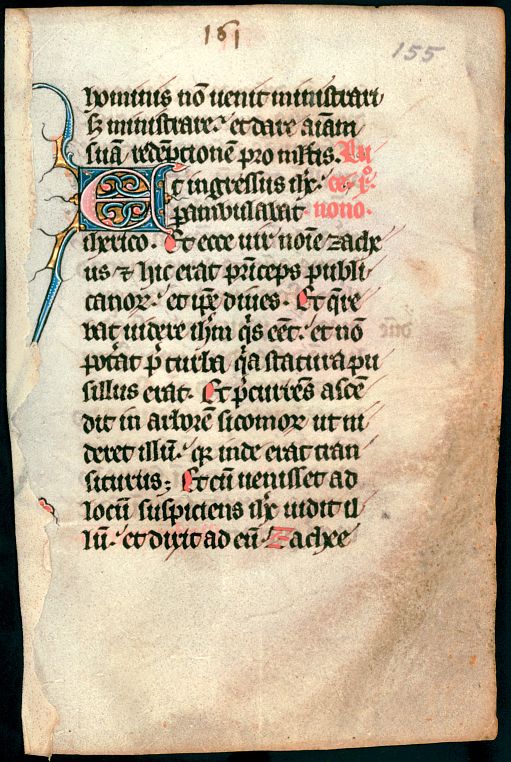 151
155
hominis nō uenit ministrari
s; ministrare. et dare aīam
suā redēptionē pro mltis. Lu
Et ingressus ihc̄. ce. i°.
perambulabat nono.
iherico. Et ecce uir noīe zache
us ⁊ hic erat prīceps publi
canor. et ip̄e diues. Et q̄re
bat uidere ihm̄ qͥs eēt. et nō
pot̄at p̄ turba qͥa statura pu
sillus erat. Et p̄currēs ascē
dit in arborē sicomor ut ui
deret illū. qꝛ inde erat tran
siturus; Et cū uenisset ad
locū suspiciens ihc̄ uidit il
lū. et dixit ad eū. Zachee